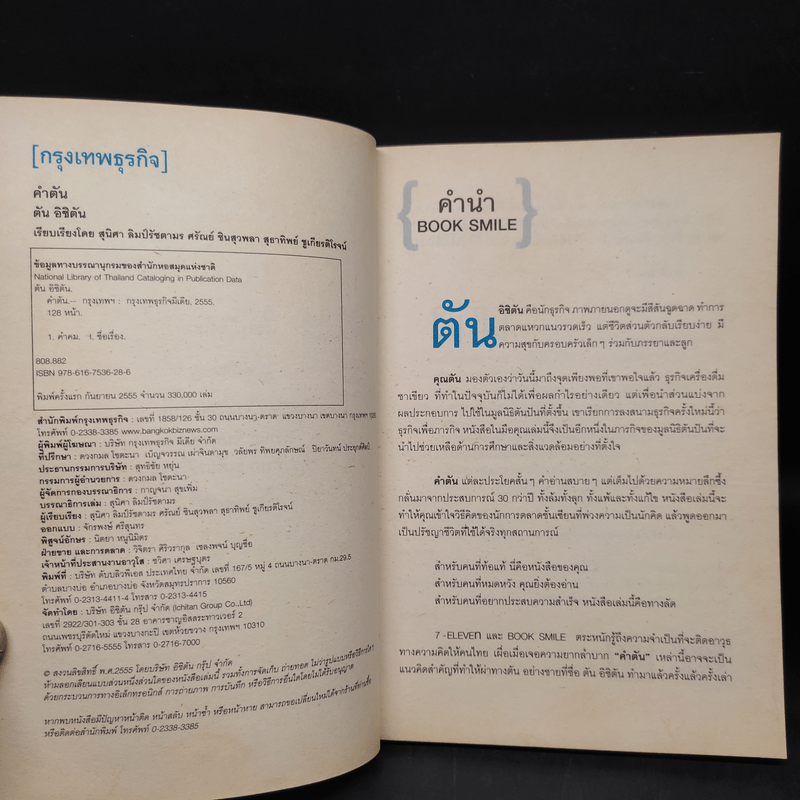 [กรุงเทพธุรกิจ]
คำตัน
ตัน อิชิตัน
เรียบเรียงโดย สุนิศา ลิมป์รัชตามร ศรัณย์ ชินสุวพลา สุธาทิพย์ ชูเกียรติโรจน์
ข้อมูลทางบรรณานุกรมของสำนักหอสมุดแห่งชาติ
National Library of Thailand Cataloging in Publication Data
ตัน อิชิตัน.
คำตัน.-- กรุงเทพฯ : กรุงเทพธุรกิจมีเดีย, 2555.
128 หน้า.
1. คำคม. 1. ชื่อเรื่อง.
808.882
ISBN 978-616-7536-28-6
พิมพ์ครั้งแรก กันยายน 2555 จำนวน 330,000 เล่ม
สำนักพิมพ์กรุงเทพธุรกิจ : เลขที่ 1858/126 ชั้น 30 ถนนบางนา-ตราด แขวงบางนา เขตบางนา กรุงเทพฯ
โทรศัพท์ 0-2338-3385 www.bangkokbiznews.com
ผู้พิมพ์ผู้โฆษณา : บริษัท กรุงเทพธุรกิจ มีเดีย จำกัด
ที่ปรึกษา : ดวงกมล โชตะนา เบ็ญจวรรณ เผ่าจินดามุข วลัยพร ทิพยศุภลักษณ์ ปิยาวันทน์ ประยุกต์ศิลป์
ประธานกรรมการบริษัท : สุทธิชัย หยุ่น
กรรมการผู้อำนวยการ : ดวงกมล โชตะนา
ผู้จัดการกองบรรณาธิการ : กาญจนา สุขเพิ่ม
บรรณาธิการเล่ม : สุนิศา ลิมป์รัชตามร
ผู้เรียบเรียง : สุนิศา ลิมป์รัชตามร ศรัณย์ ชินสุวพลา สุธาทิพย์ ชูเกียรติโรจน์
ออกแบบ : จักรพงษ์ ศรีสุนทร
พิสูจน์อักษร : นิตยา หนูนิมิตร
ฝ่ายขาย และการตลาด : วิจิตรา ศิริวรากุล เชลงพจน์ บุญชื่อ
เจ้าหน้าที่ประสานงานอาวุโส : ชวิศา เศรษฐบุตร
พิมพ์ที่ : บริษัท ดับบลิวพีเอส ประเทศไทย จำกัด เลขที่ 167/5 หมู่ 4 ถนนบางนา-ตราด กม.29.5
ตำบลบางบ่อ อำเภอบางบ่อ จังหวัดสมุทรปราการ 10560
โทรศัพท์ 0-2313-4411-4 โทรสาร 0-2313-4415
จัดทำโดย : บริษัท อิชิตัน กรุ๊ป จำกัด (Ichitan Group Co.,Ltd)
เลขที่ 2922/301-303 ชั้น 28 อาคารชาญอิสสระทาวเวอร์ 2
ถนนเพชรบุรีตัดใหม่ แขวงบางกะปิ เขตห้วยขวาง กรุงเทพฯ 10310
โทรศัพท์ 0-2716-5555 โทรสาร 0-2716-7000
© สงวนลิขสิทธิ์ พ.ศ.2555 โดยบริษัท อิชิตัน กรุ๊ป จำกัด
ห้ามลอกเลียนแบบส่วนหนึ่งส่วนใดของหนังสือเล่มนี้ รวมทั้งการจัดเก็บ ถ่ายทอด ไม่ว่ารูปแบบหรือวิธีการใดๆ
ด้วยกระบวนการทางอิเล็กทรอนิกส์ การถ่ายภาพ การบันทึก หรือวิธีการอื่นใดโดยไม่ได้รับอนุญาต
หากพบหนังสือมีปัญหาหน้าติด หน้าสลับ หน้าซ้ำ หรือหน้าหาย สามารถขอเปลี่ยนใหม่ได้จากร้านที่ท่านซื้อ
หรือติดต่อสำนักพิมพ์ โทรศัพท์ 0-2338-3385
{คำนำ
BOOK SMILE}
ตัน อิชิตัน คือนักธุรกิจ ภาพภายนอกดูจะมีสีสันฉูดฉาด ทำการ
ตลาดแหวกแนวรวดเร็ว แต่ชีวิตส่วนตัวกลับเรียบง่าย มี
ความสุขกับครอบครัวเล็กๆ ร่วมกับภรรยาและลูก
คุณตัน มองตัวเองว่าวันนี้มาถึงจุดเพียงพอที่เขาพอใจแล้ว ธุรกิจเครื่องดื่ม
ชาเขียว ที่ทำในปัจจุบันก็ไม่ได้เพื่อผลกำไรอย่างเดียว แต่เพื่อนำส่วนแบ่งจาก
ผลประกอบการ ไปใช้ในมูลนิธิตันปันที่ตั้งขึ้น เขาเรียกการลงสนามธุรกิจครั้งใหม่นี้ว่า
ธุรกิจเพื่อภารกิจ หนังสือในมือคุณเล่มนี้จึงเป็นอีกหนึ่งในภารกิจของมูลนิธิตันปันที่จะ
นำไปช่วยเหลือด้านการศึกษาและสิ่งแวดล้อมอย่างที่ตั้งใจ
คำตัน แต่ละประโยคสั้นๆ คำอ่านสบายๆ แต่เต็มไปด้วยความหมายลึกซึ้ง
กลั่นมาจากประสบการณ์ 30 กว่าปี ทั้งล้มทั้งลุก ทั้งแพ้และทั้งแก้ไข หนังสือเล่มนี้จะ
ทำให้คุณเข้าใจวิธีคิดของนักการตลาดชั้นเซียนที่พ่วงความเป็นนักคิด แล้วพูดออกมา
เป็นปรัชญาชีวิตที่ใช้ได้จริงทุกสถานการณ์
สำหรับคนที่ท้อแท้ นี่คือหนังสือของคุณ
สำหรับคนที่หมดหวัง คุณยิ่งต้องอ่าน
สำหรับคนที่อยากประสบความสำเร็จ หนังสือเล่มนี้คือทางลัด
7-ELEVEn และ BOOK SMILE ตระหนักรู้ถึงความจำเป็นที่จะติดอาวุธ
ทางความคิดให้คนไทย เผื่อเมื่อเจอความยากลำบาก "คำตัน" เหล่านี้อาจจะเป็น
แนวคิดสำคัญที่ทำให้ผ่าทางตัน อย่างชายที่ชื่อ ตัน อิชิตัน ทำมาแล้วครั้งแล้วครั้งเล่า